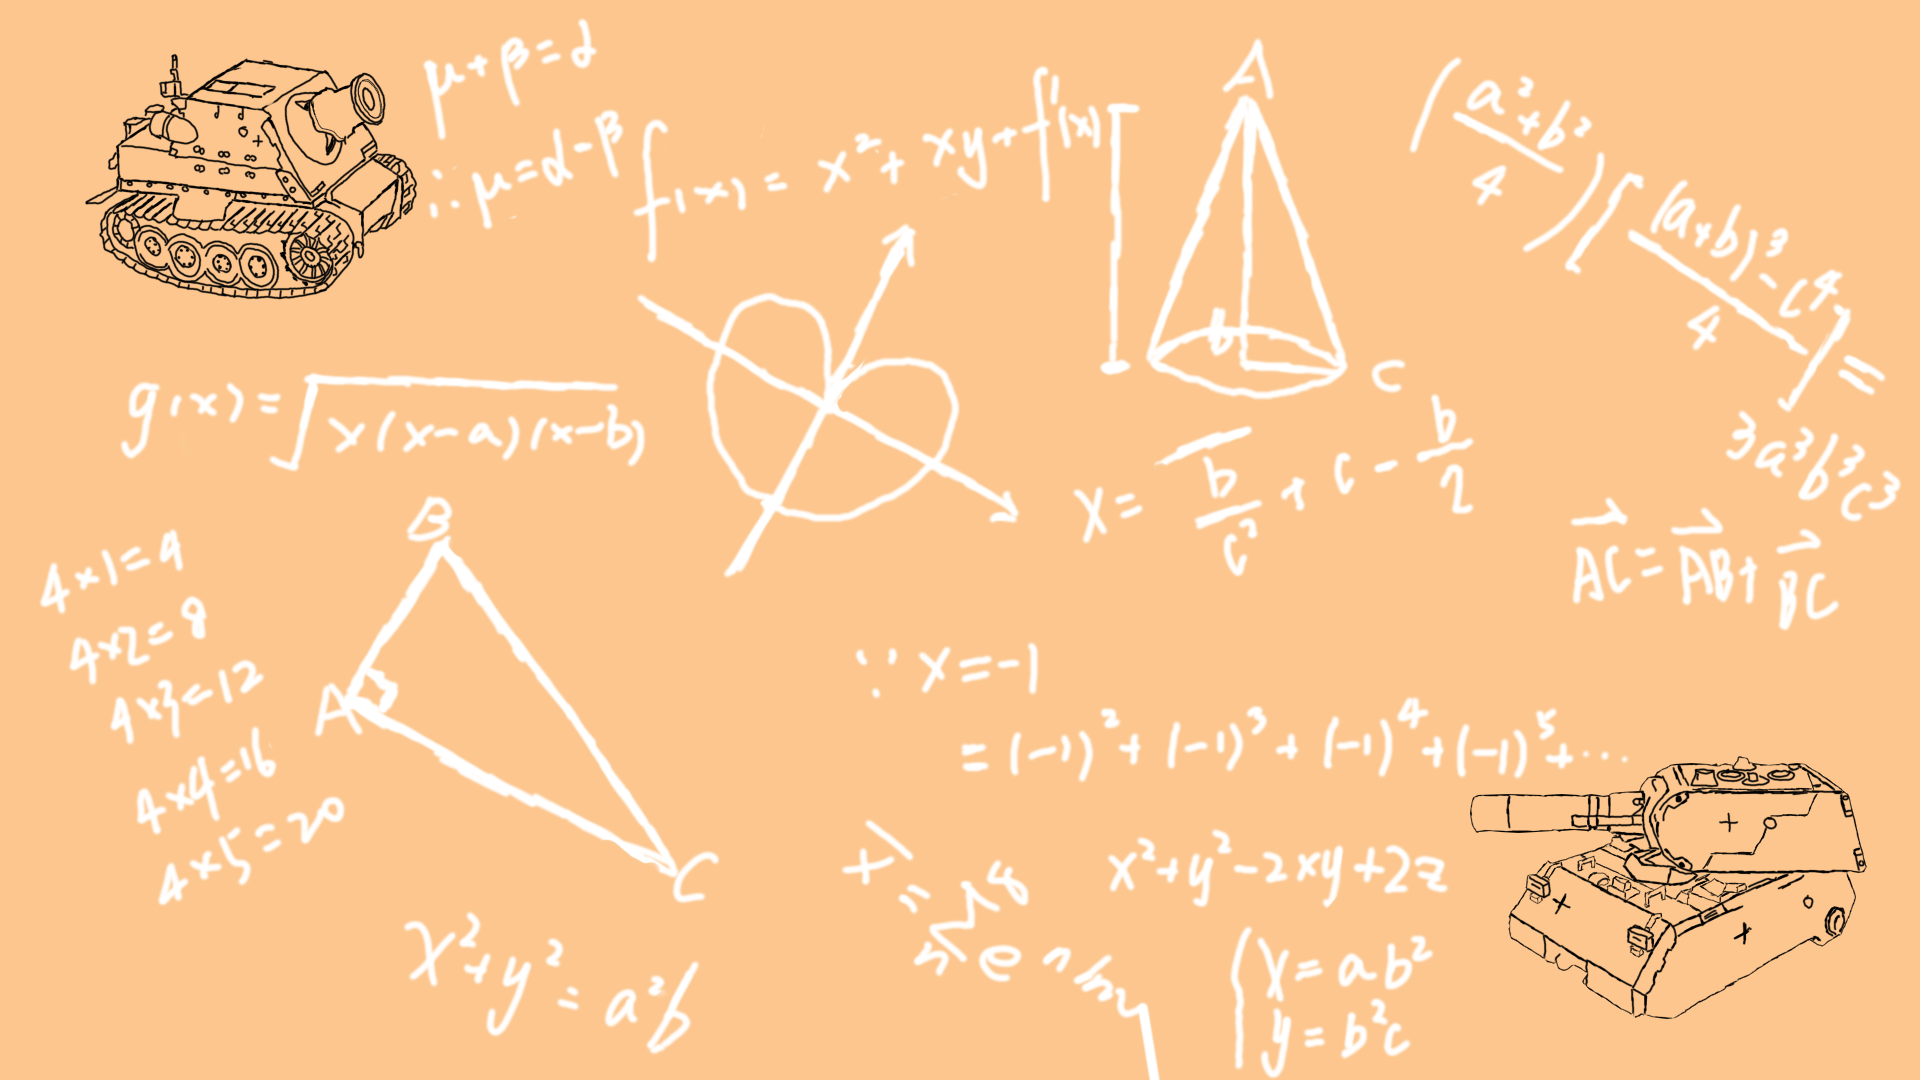 μ+β=α
∴μ=α-β
f(x)=x²+xy+f'(x)
A
b
C
(a²+b²/4)[(a+b)³-c⁴/4]=
3a³b³c³
g(x)=√x(x-a)(x-b)
X=b/c²+c-b/2
AC=AB+BC
B
A
C
4×1=4
4×2=8
4×3=12
4×4=16
4×5=20
∵x=-1
=(-1)²+(-1)³+(-1)⁴+(-1)⁵+…
x²+y²-2xy+2z
{x=ab²
y=b²c
x²+y²=a²b